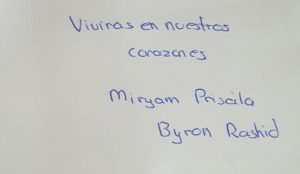 Viviras en nuestros
corazones
Miryam Priscila
Byron Rashid